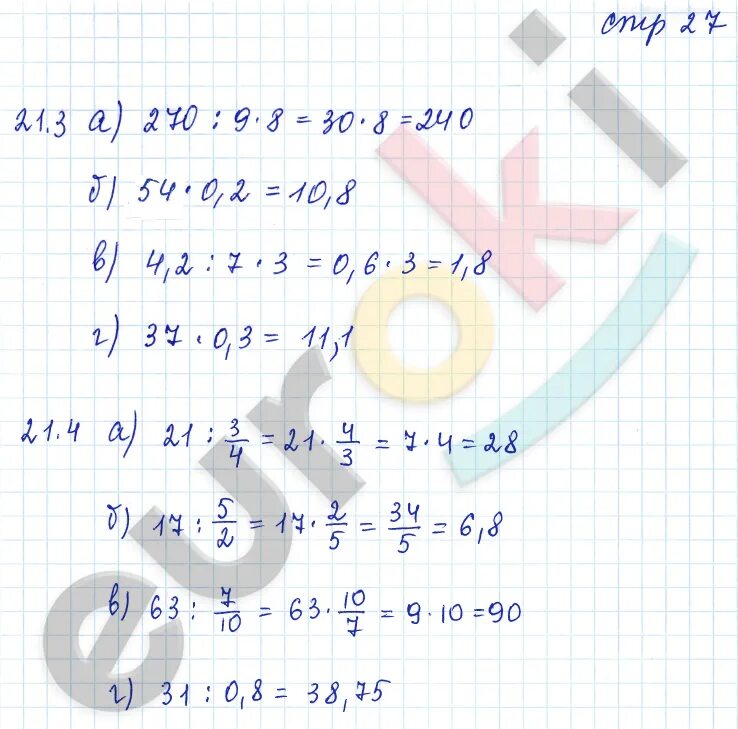 стр 27
21.3 а) 270 : 9 · 8 = 30 · 8 = 240
б) 54 · 0,2 = 10,8
в) 4,2 : 7 · 3 = 0,6 · 3 = 1,8
г) 37 · 0,3 = 11,1
21.4 а) 21 : 3/4 = 21 · 4/3 = 7 · 4 = 28
б) 17 : 5/2 = 17 · 2/5 = 34/5 = 6,8
в) 63 : 7/10 = 63 · 10/7 = 9 · 10 = 90
г) 31 : 0,8 = 38,75
euroki